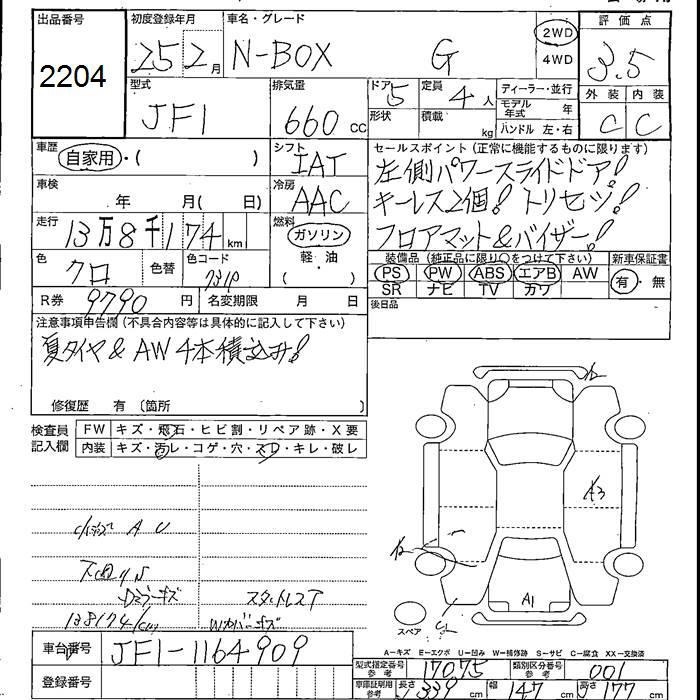 出品番号 初度登録年月 車名・グレード 評価点
2204 25 2月 N-BOX G 2WD 4WD 3.5
型式 排気量 ドア 定員 ディーラー・並行 外装 内装
JF1 660 cc 5 4人 モデル年式 年 C C
形状 積載 kg ハンドル 左・右
車歴 シフト セールスポイント(正常に機能するものに限ります)
自家用・( ) IAT 左側パワースライドドア!
車検 冷房 キーレス2個! トリセツ!
年 月( 日) AAC フロアマット&バイザー!
走行 燃料
13万8千174km ガソリン 装備品(純正品に限り○をつけて下さい) 新車保証書
色 色替 色コード 軽・油 PS PW ABS エアB AW 有・無
クロ 731P ( ) SR ナビ TV カワ
R券 9790円 名変期限 月 日 後日品
注意事項申告欄(不具合内容等は具体的に記入して下さい)
夏タイヤ&AW4本積込み!
修復歴 有 〔箇所 〕
検査員 FW キズ・飛石・ヒビ割・リペア跡・X要
記入欄 内装 キズ・汚レ・コゲ・穴・スレ・キレ・破レ
A3
A U
スタットレスT
138174km
A1
スペア
A-キズ E-エクボ U-凹み W-補修跡 S-サビ C-腐食 XX-交換済
車台番号 JF1-1164909 型式指定番号 参考 17075 類別区分番号 参考 001
登録番号 車庫証明用 参考 長さ 339cm 幅 147cm 高さ 177cm